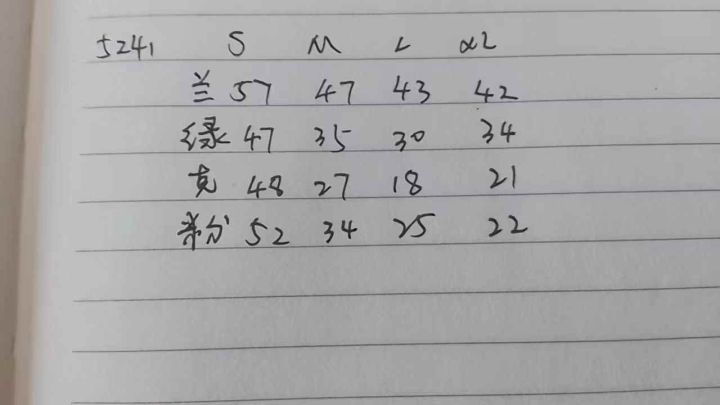 5241 S M L XL
兰 57 47 43 42
绿 47 35 30 34
克 48 27 18 21
粉 52 34 25 22